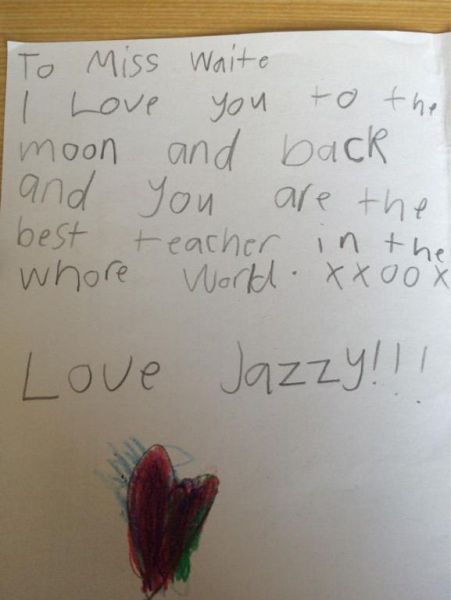 To Miss Waite
I Love you to the
moon and back
and you are the
best teacher in the
whore World. xxoox
Love Jazzy!!!